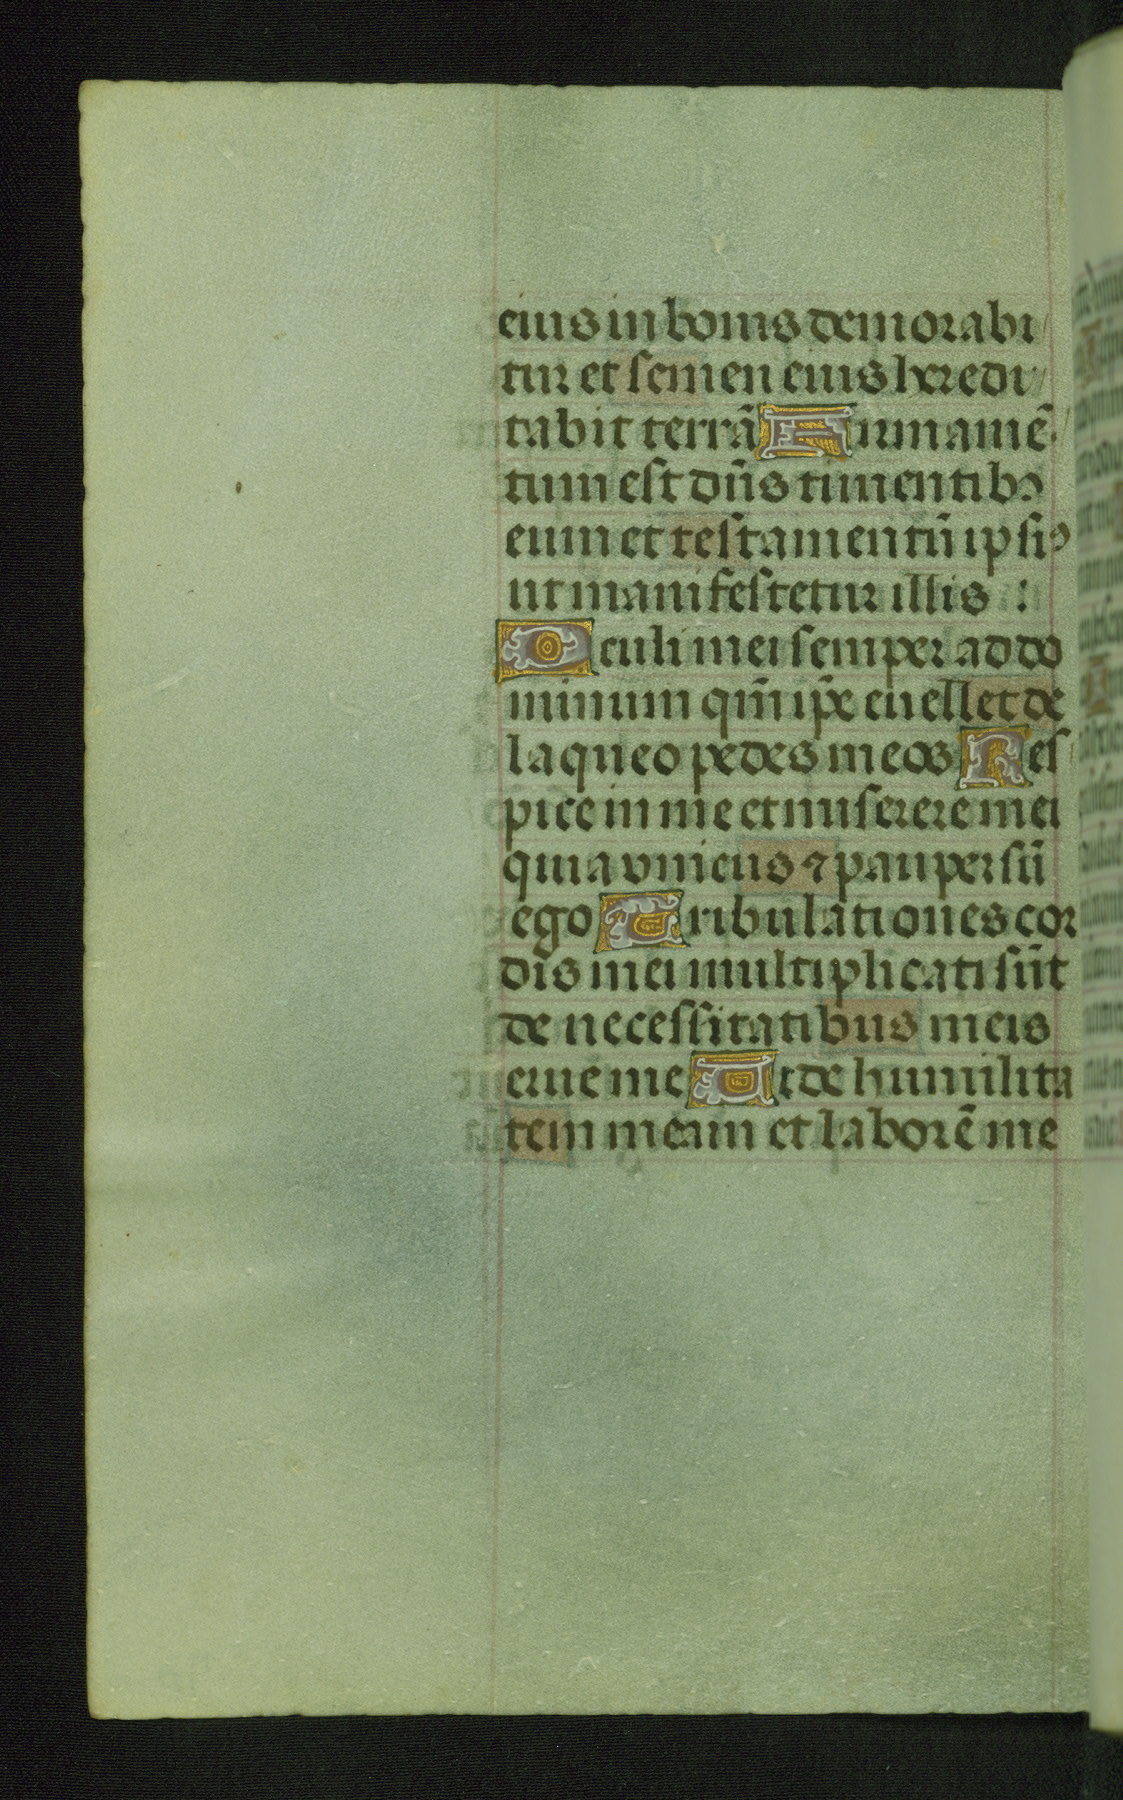 eius in bonis demorabi
tur et semen eius heredi
tabit terrā Firmamē
tum est dn̄s timentibꝫ
eum et testamentū ipsiꝰ
ut manifestetur illis :
Oculi mei semper ad do
minum qm̄ ip̄e euellet de
laqueo pedes meos Res
pice in me et miserere mei
quia vnicus ⁊ pauper sū
ego Tribulationes cor
dis mei multiplicati sūt
de necessitatibus meis
erue me Uide humilita
tem meam et laborē me